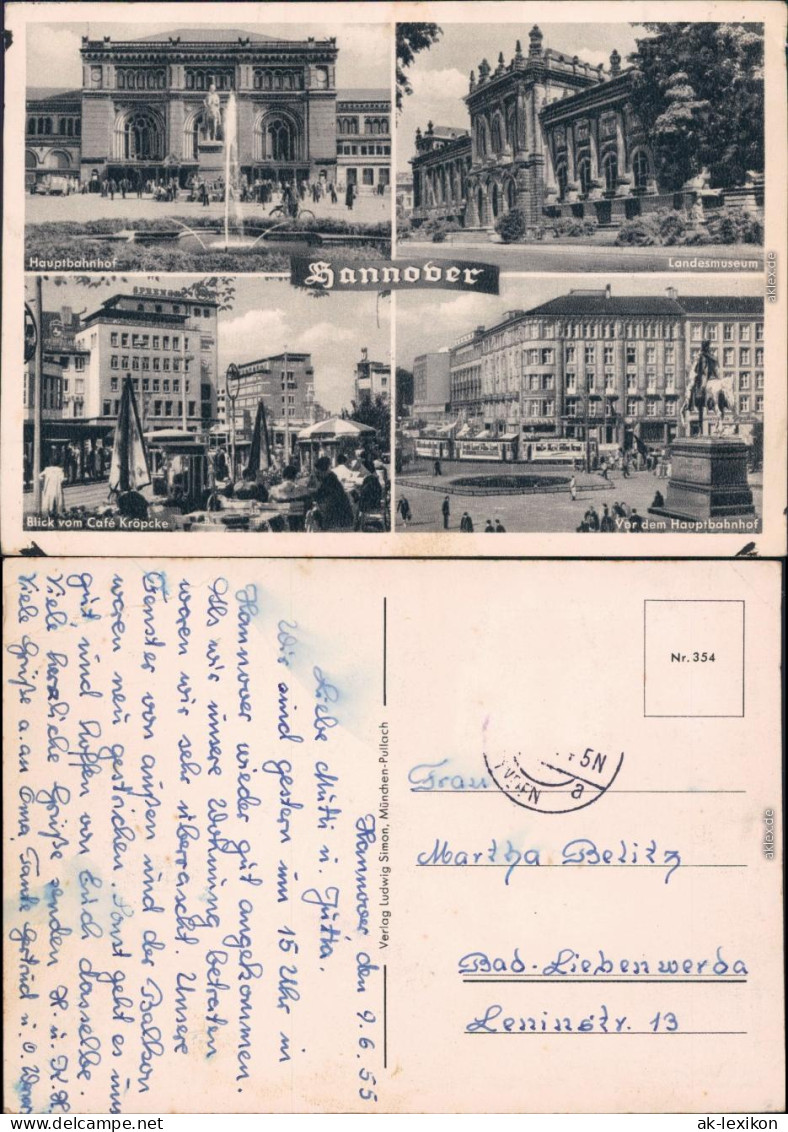 Hauptbahnhof
Landesmuseum
Hannover
Blick vom Café Kröpcke
Vor dem Hauptbahnhof
Hannover, den 9.6.55
Liebe Mutti u. Jutta.
Wir sind gestern um 15 Uhr in
Hannover wieder gut angekommen.
Als wir unsere Wohnung betraten
waren wir sehr überrascht. Unsere
Fenster von außen und der Balkon
waren neu gestrichen. Sonst geht es uns
gut und hoffen von Euch dasselbe.
Viele herzliche Grüße senden H. u. K. H.
Viele Grüße a. an Oma, Tante Gertrud u. O.
Verlag Ludwig Simon, München-Pullach
Nr. 354
5N
a
Frau
Martha Belitz
Bad-Liebenwerda
Leninstr. 13
aklex.de
aklex.de
ak-lexikon